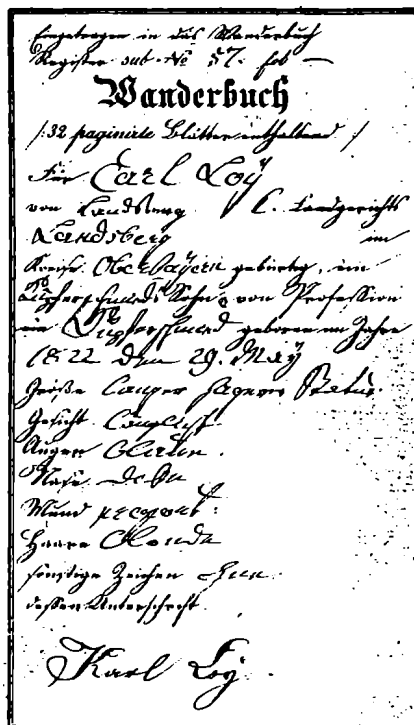 Eingetragen in das Wanderbuch
Register sub. No 57. fol —
Wanderbuch
/: 32 paginirte Blätter enthaltend /
Für Carl Loÿ
von Landsberg k. Landgerichts
Landsberg im
Kreise Oberbayern gebürtig, ein
Kupferschmieds Sohn, von Profession
ein Kupferschmied geboren im Jahre
1822 den 29. Maÿ
Größe langer hagerer Statur.
Gesicht länglich
Augen blau.
Nase
Mund
Haare blonde
sonstige Zeichen
dessen Unterschrift
Karl Loÿ.